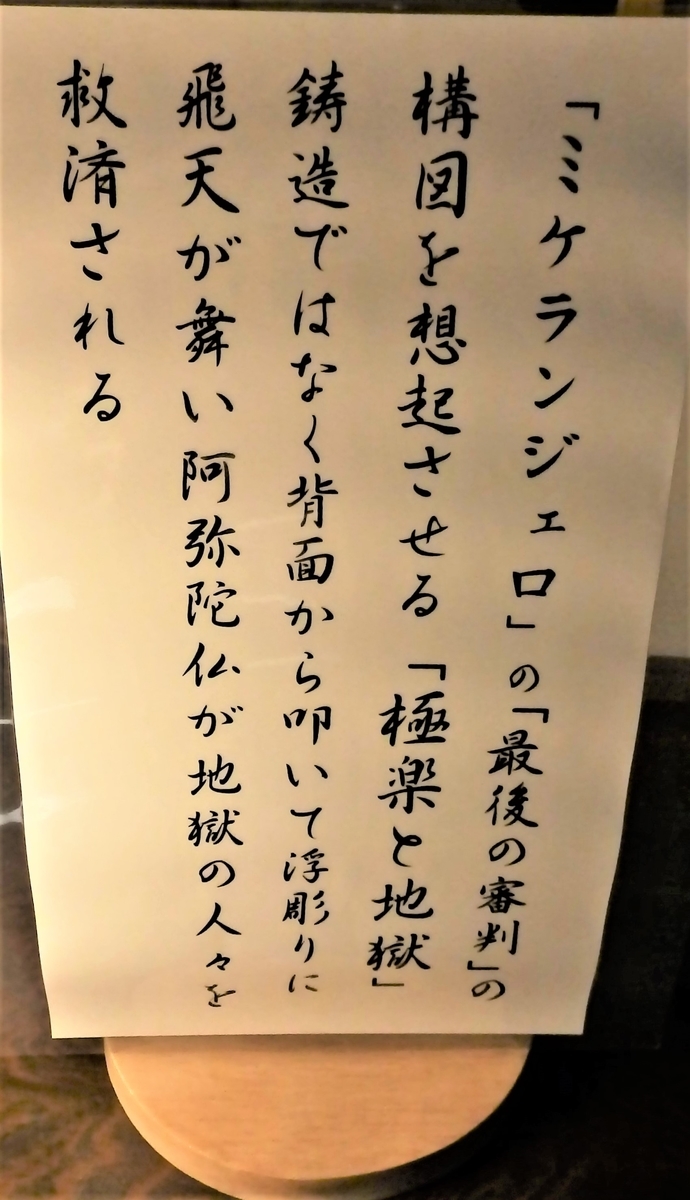 「ミケランジェロ」の「最後の審判」の
構図を想起させる「極楽と地獄」
鋳造ではなく背面から叩いて浮彫りに
飛天が舞い阿弥陀仏が地獄の人々を
救済される